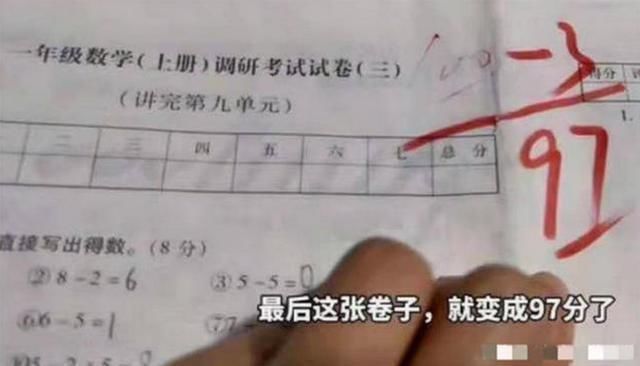 一年级数学(上册)调研考试试卷(三)
100-3
(讲完第九单元)
得分
1.
97
二 三 四 五 六 七 总分
直接写出得数。(8分)
②8-2=6 ③5-5=0
最后这张卷子，就变成97分了
⑥6-5=1 ⑦7